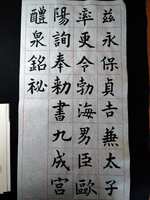 兹永保貞吉兼太子
率更令勃海男臣歐
陽詢奉勅書九成宮
醴泉銘祕